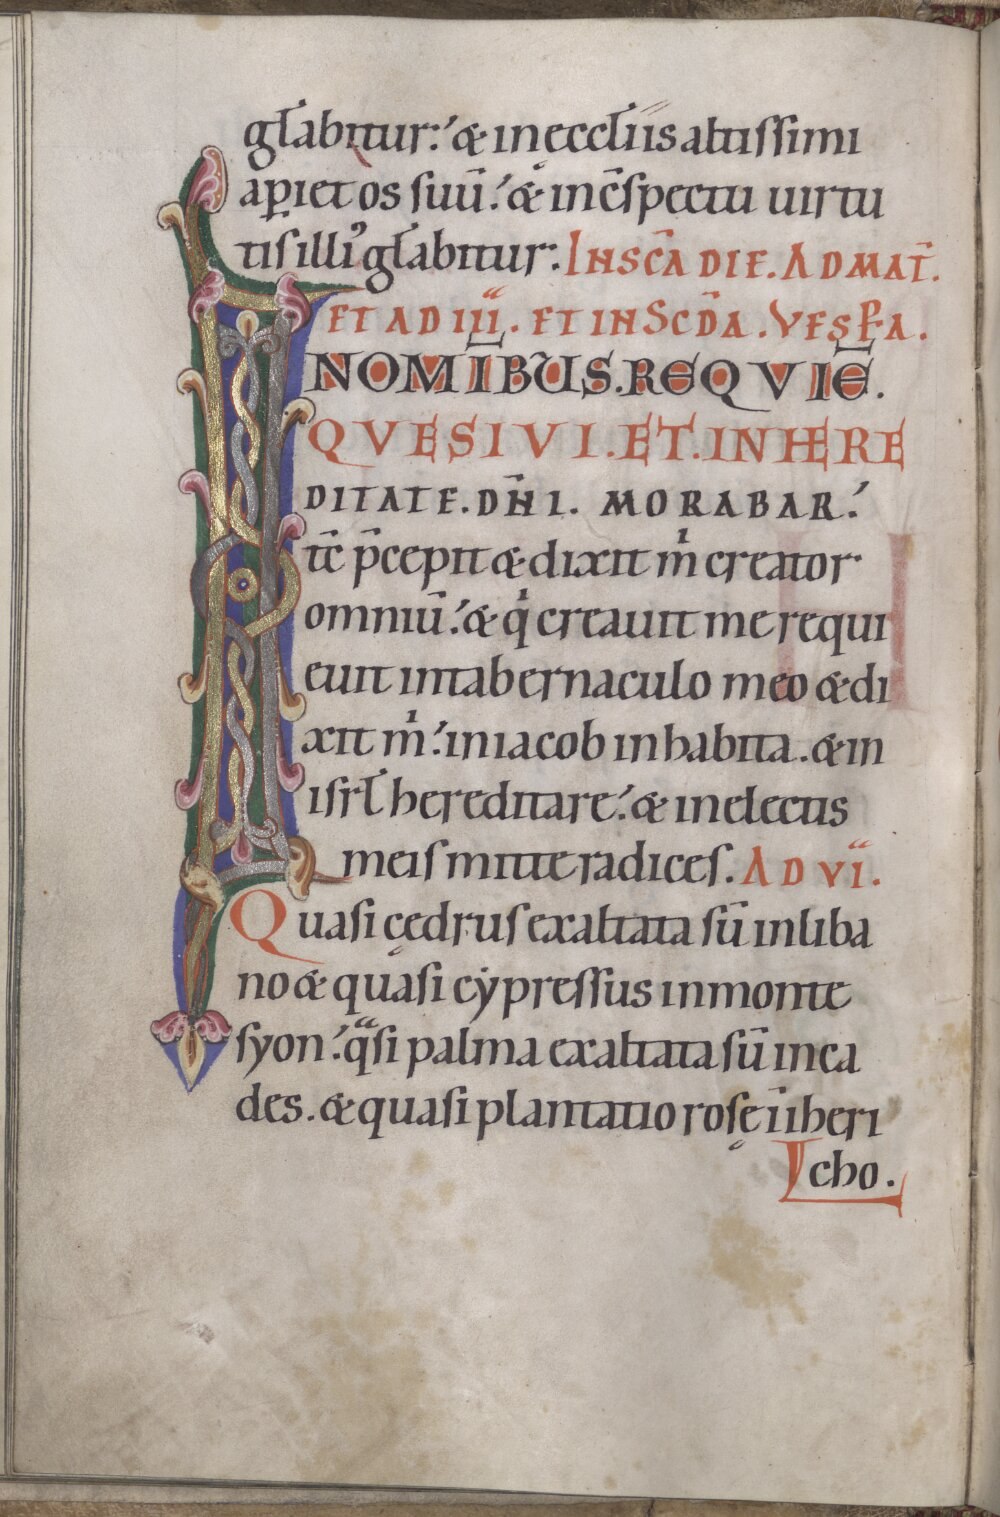 gl̄abitur:' & in eccl̄iis altissimi
ap̲iet os suū:' & in c̄spectu uirtu
tis illi᾽ gl̄abitur: IN SC̄A DIE. AD MAT̄.
ET AD III. ET IN SCD̄A. VESP̲A.
IN OMIB̄US. REQVIĒ.
QVESIVI. ET. IN HERE
DITATE. DN̄I. MORABAR:'
Tc̄ p̄cepit & dixit m̍ creator
omniū:' & q̍ creauit me requi
euit in tabernaculo meo & di
xit m̍:' in iacob inhabita. & in
isrl̄ hereditare:' & in electis
meis mitte radices. AD VI.
Quasi cedrus exaltata sū in liba
no & quasi cẏpressus in monte
syon:' qͣsi palma exaltata sū in ca
des. & quasi plantatio rosę ī iheri
cho.